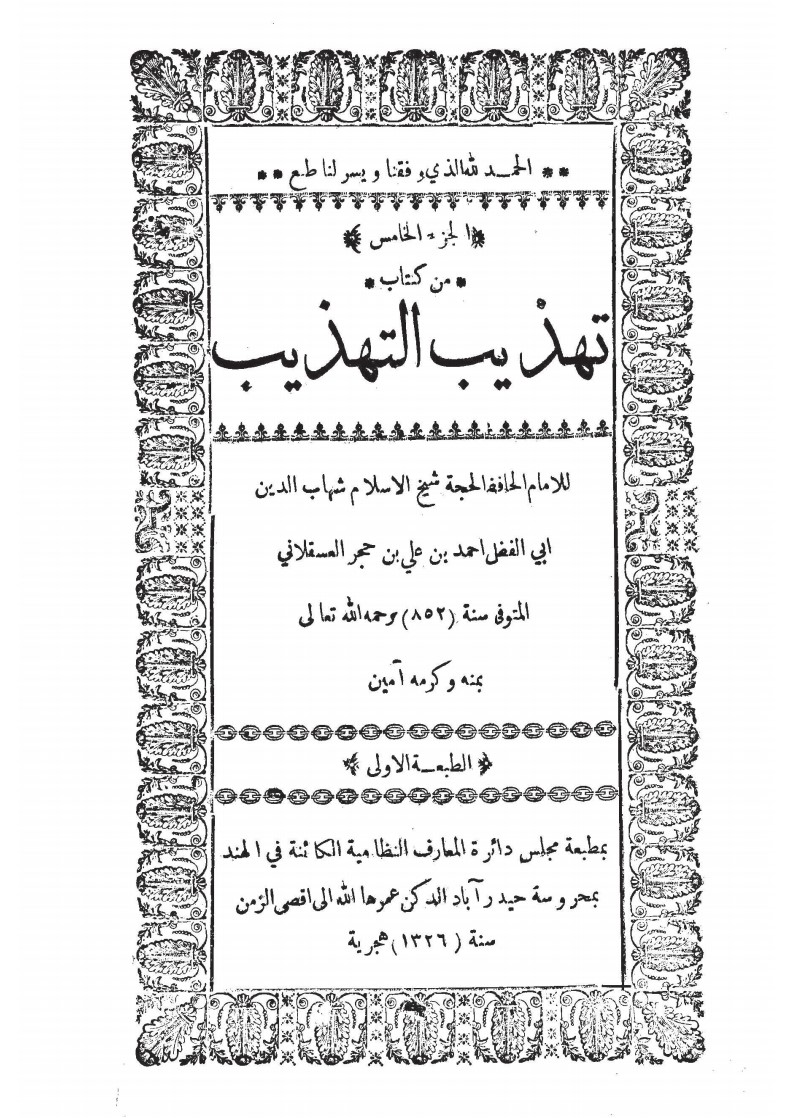 ** الحمد لله الذي وفقنا ويسر لنا طبع **
الجزء الخامس
* من كتاب *
تهذيب التهذيب
للامام الحافظ الحجة شيخ الاسلام شهاب الدين
ابي الفضل احمد بن علي بن حجر العسقلاني
المتوفى سنة (٨٥٢) رحمه الله تعالى
بمنه وكرمه آمين
الطبعة الاولى
بمطبعة مجلس دائرة المعارف النظامية الكائنة في الهند
بمحروسة حيدر آباد الدكن عمرها الله الى اقصى الزمن
سنة (١٣٢٦) هجرية